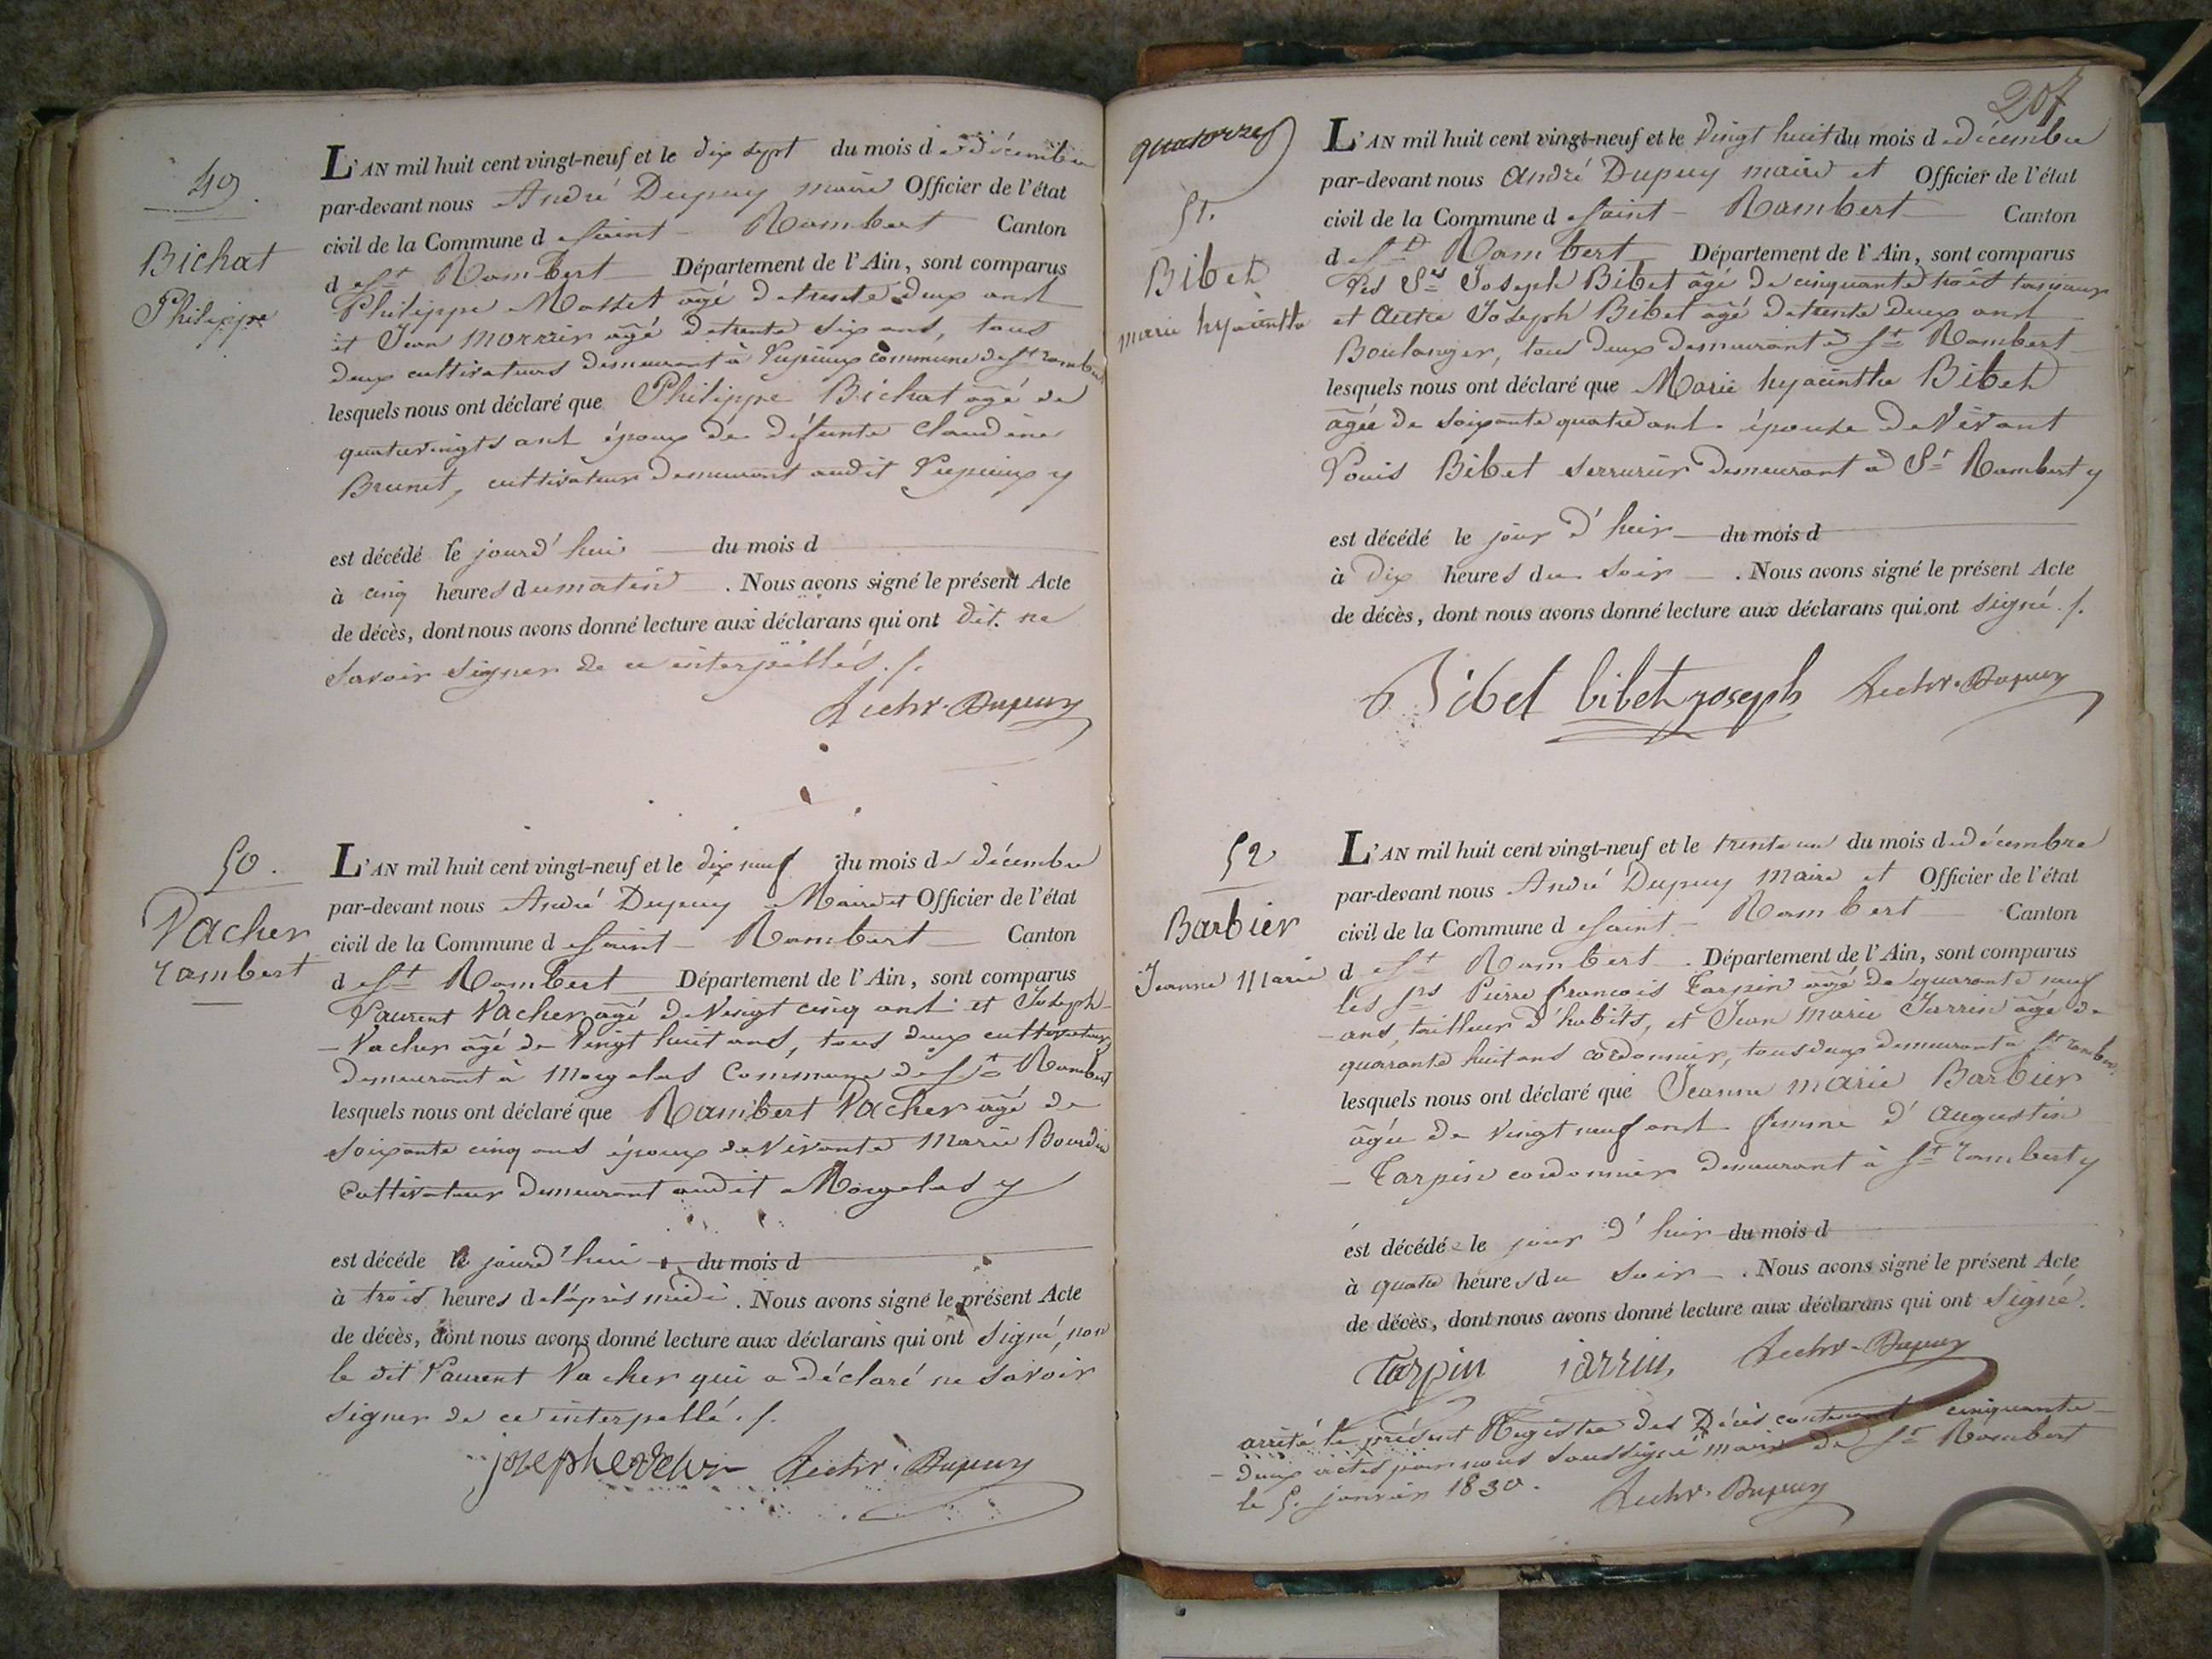 49.
Bichat
Philippe
L'AN mil huit cent vingt-neuf et le dix sept du mois de décembre
par-devant nous André Dupuy maire Officier de l'état
civil de la Commune de Saint-Rambert Canton
de St Rambert Département de l'Ain, sont comparus
Philippe Mottet âgé de trente deux ans
et Jean âgé de trente six ans, tous
deux cultivateurs demeurant à commune de St Rambert
lesquels nous ont déclaré que Philippe Bichat âgé de
quatrevingts ans époux de défunte Claudine
Brunet, cultivateur demeurant audit y
est décédé le jourd'hui du mois d
à cinq heures du matin. Nous avons signé le présent Acte
de décès, dont nous avons donné lecture aux déclarans qui ont dit ne
savoir signer de ce interpellés ./.
Dupuy
50.
Vacher
rambert
L'AN mil huit cent vingt-neuf et le dix neuf du mois de décembre
par-devant nous André Dupuy Maire et Officier de l'état
civil de la Commune de Saint-Rambert Canton
de St Rambert Département de l'Ain, sont comparus
Laurent Vacher âgé de Vingt cinq ans et Joseph
Vacher âgé de Vingt huit ans, tous deux cultivateurs
demeurant à Morgelas Commune de St Rambert
lesquels nous ont déclaré que Rambert Vacher âgé de
soixante cinq ans époux de Vivante Marie Bourdin
Cultivateur demeurant audit Morgelas y
est décédé le jourd'hui du mois d
à trois heures de l'après midi. Nous avons signé le présent Acte
de décès, dont nous avons donné lecture aux déclarans qui ont signé, non
le dit Laurent Vacher qui a déclaré ne savoir
signer de ce interpellé ./.
joseph Dupuy
207
quatorze
51.
Bibet
marie hyacinthe
L'AN mil huit cent vingt-neuf et le Vingt huit du mois de décembre
par-devant nous André Dupuy maire et Officier de l'état
civil de la Commune de Saint-Rambert Canton
de St Rambert Département de l'Ain, sont comparus
Les Srs Joseph Bibet âgé de cinquante trois ans
et autre Joseph Bibet âgé de trente deux ans
Boulanger, tous deux demeurant à St Rambert
lesquels nous ont déclaré que Marie hyacinthe Bibet
âgée de soixante quatre ans épouse de Vivant
Louis Bibet serrurier demeurant à St Rambert y
est décédé le jour d'hier du mois d
à Dix heures du soir. Nous avons signé le présent Acte
de décès, dont nous avons donné lecture aux déclarans qui ont signé ./.
Bibet bibet joseph Dupuy
52
Barbier
Jeanne Marie
L'AN mil huit cent vingt-neuf et le trente un du mois de décembre
par-devant nous André Dupuy Maire et Officier de l'état
civil de la Commune de Saint-Rambert Canton
de St Rambert. Département de l'Ain, sont comparus
les Srs Pierre françois Tarpin âgé de quarante neuf
ans, tailleur d'habits, et Jean Marie Jarrin âgé de
quarante huit ans cordonnier, tous deux demeurant à St rambert
lesquels nous ont déclaré que Jeanne Marie Barbier
âgée de Vingt neuf ans femme d'Augustin
Tarpin cordonnier demeurant à St rambert y
est décédé le jour d'hier du mois d
à quatre heures du soir. Nous avons signé le présent Acte
de décès, dont nous avons donné lecture aux déclarans qui ont signé.
Tarpin jarrin Dupuy
arrêté le présent Registre des Décès contenant cinquante
deux actes par nous soussigné maire de St Rambert
le 5. janvier 1830.
Dupuy